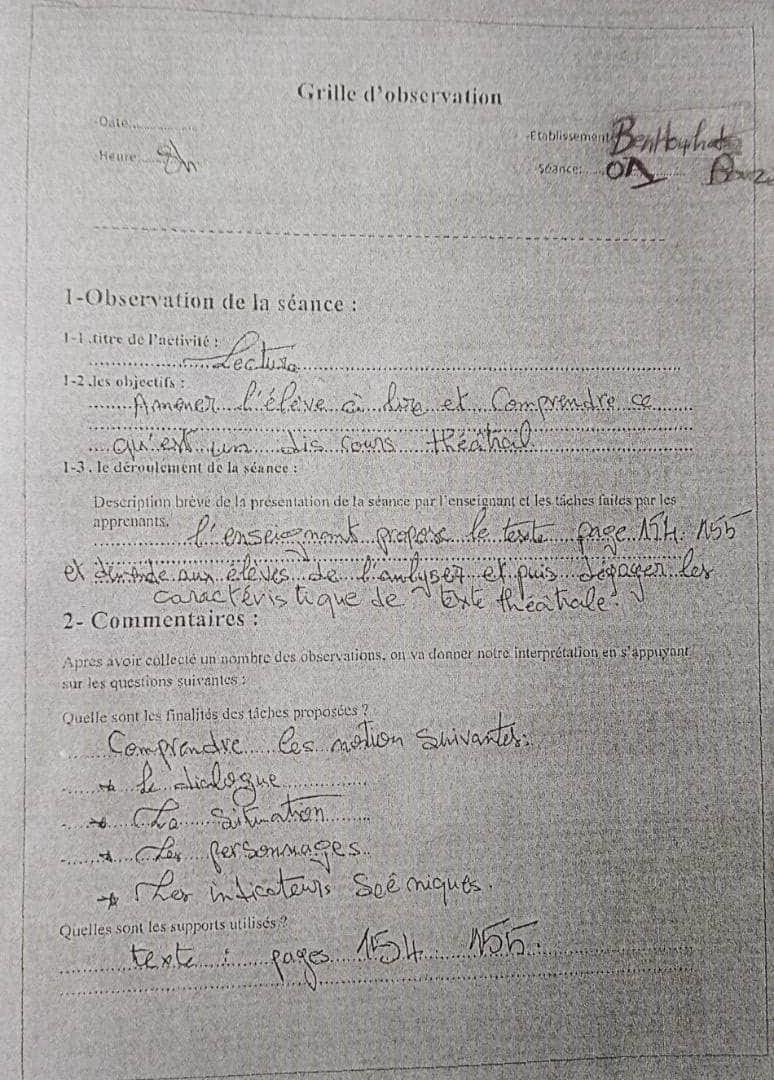 Grille d'observation
-Date..................
-Etablissement
-Heure......8h.
-Séance:.....01........
1-Observation de la séance :
1-1.titre de l'activité :
Lecture
1-2.les objectifs :
Amener l'élève à lire et Comprendre ce
qu'est un discours théâtrail
1-3. le déroulement de la séance :
Description brève de la présentation de la séance par l'enseignant et les tâches faites par les
apprenants. l'enseignant propose le texte page 154. 155
et demande aux élèves de l'anlyser et puis dégager les
caractéristique de texte théâtrale.
2- Commentaires :
Apres avoir collecté un nombre des observations, on va donner notre interprétation en s'appuyant
sur les questions suivantes :
Quelle sont les finalités des tâches proposées ?
Comprendre les notion suivantes:
→ le dialogue
→ La situation
→ Les personnages.
→ Les indicateurs Scéniques.
Quelles sont les supports utilisés ?
texte : pages 154. 155.